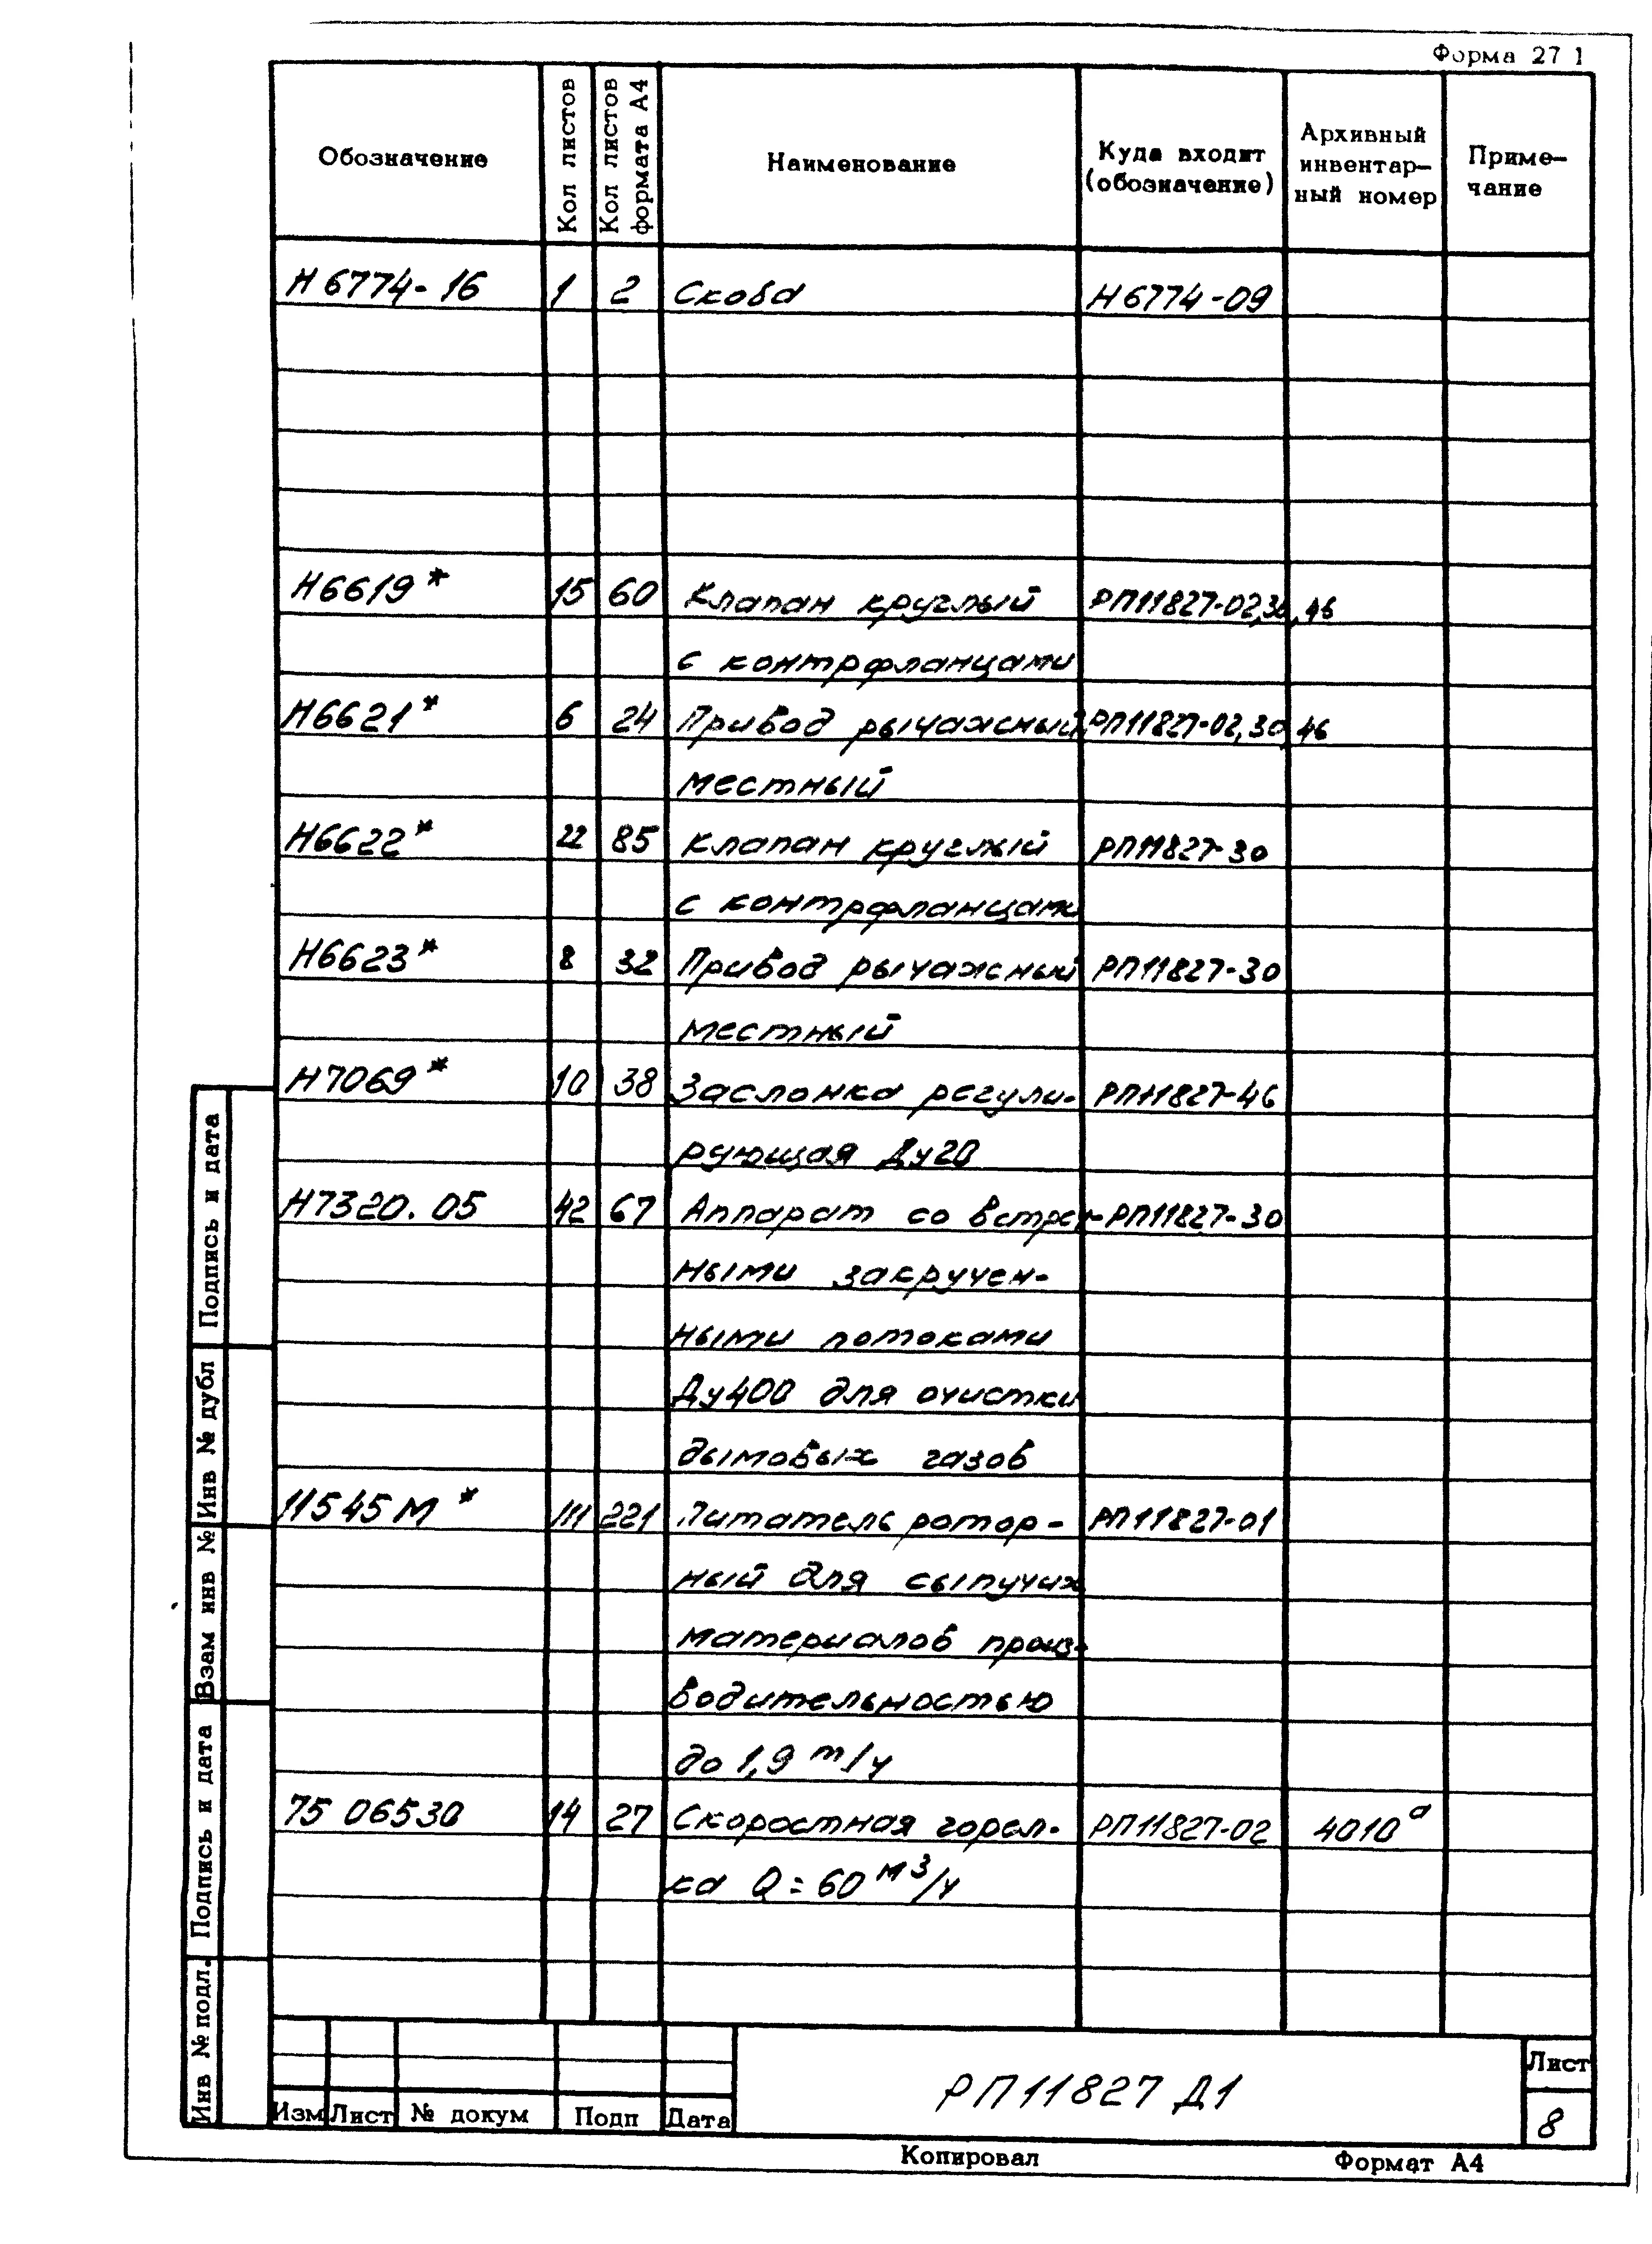 Форма 27 1
Обозначение
Кол листов
Кол листов
формата А4
Наименование
Куда входит
(обозначение)
Архивный
инвентар-
ный номер
Приме-
чание
Н6774-16 1 2 Скоба Н6774-09
Н6619* 15 60 Клапан круглый РП11827-02,30,46
с контрфланцами
Н6621* 6 24 Привод рычажный РП11827-02,30,46
местный
Н6622* 22 85 Клапан круглый РП11827-30
с контрфланцами
Н6623* 8 32 Привод рычажный РП11827-30
местный
Н7069* 10 38 Заслонка регули- РП11827-46
рующая Ду20
Н7320.05 42 67 Аппарат со встреч- РП11827-30
ными закручен-
ными потоками
Ду400 для очистки
дымовых газов
11545М* 111 221 Питатель ротор- РП11827-01
ный для сыпучих
материалов произ-
водительностью
до 1,9 т/ч
75 06530 14 27 Скоростная горел- РП11827-02 4010а
ка Q=60 м³/ч
Подпись и дата
Инв № дубл
Взам инв №
Подпись и дата
Инв № подл.
Изм Лист № докум Подп Дата
РП11827 Д1
Лист
8
Копировал Формат А4